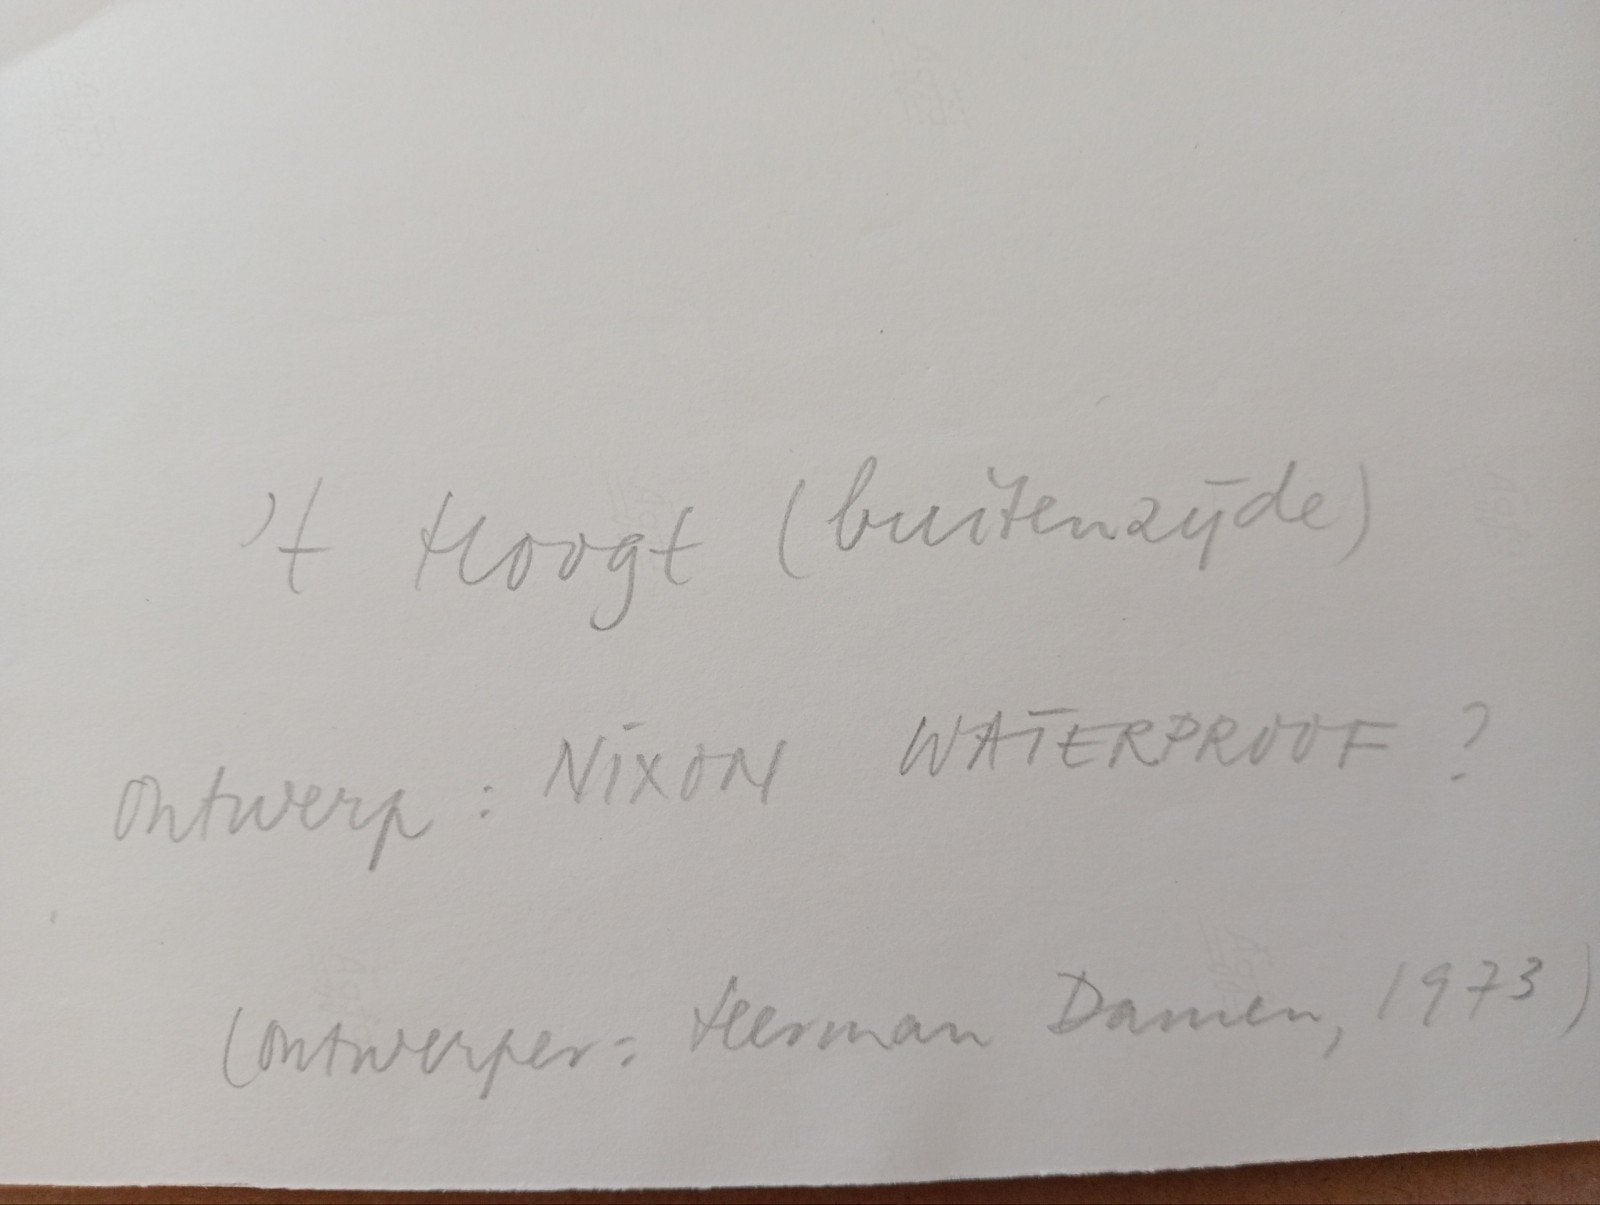 't Hoogt (buitenzijde)
Ontwerp: NIXON WATERPROOF ?
(ontwerper: Herman Damen, 1973)